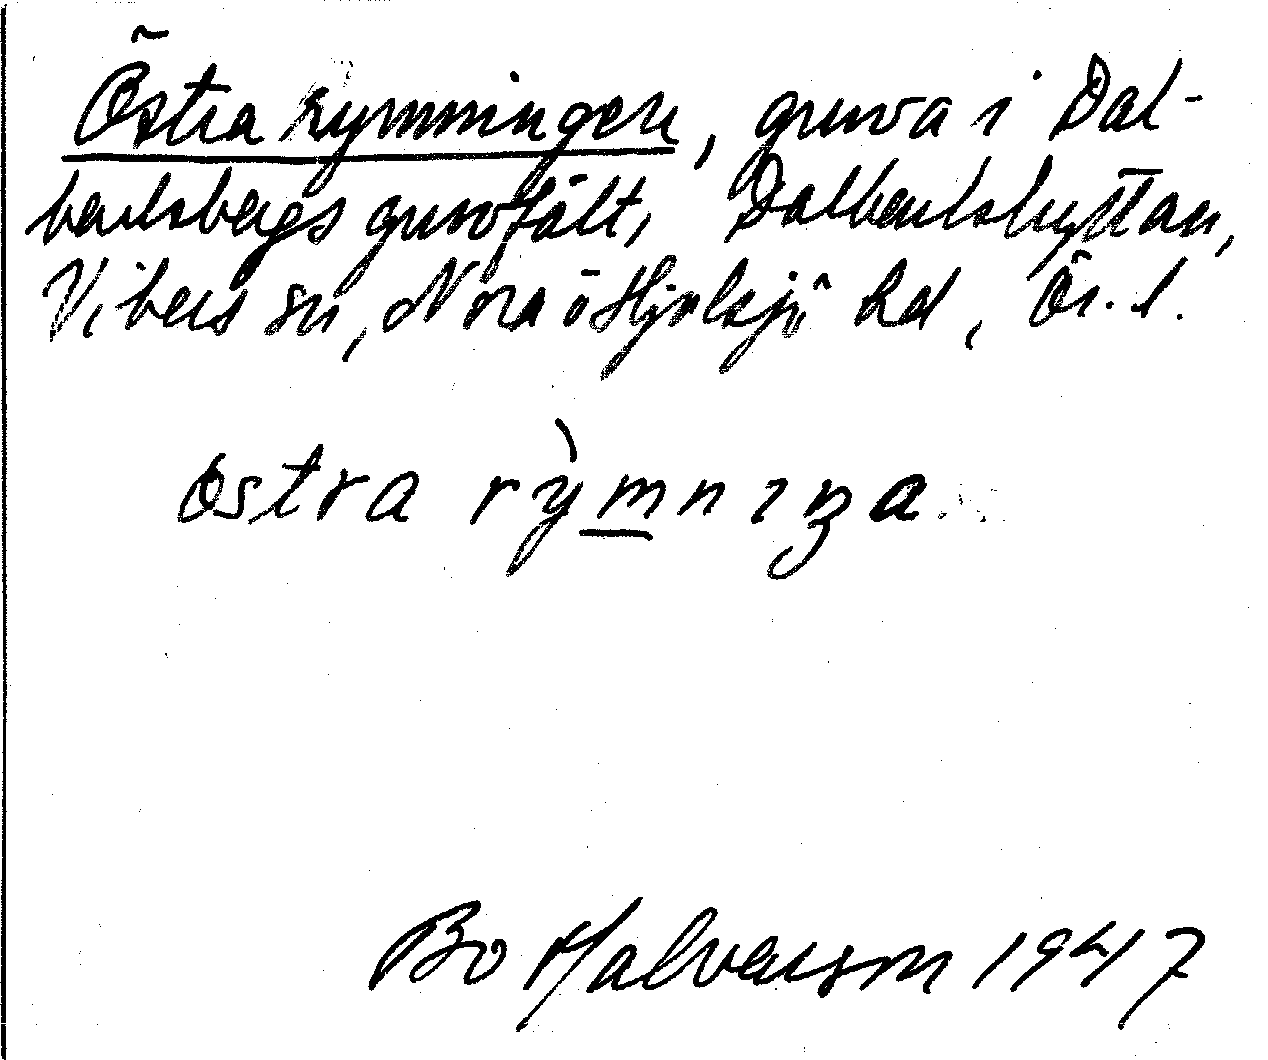 Östra Rymningen, gruva i Dal-
karlsbergs gruvfält, Dalkarlshyttan,
Vikers sn, Nora o Hjulsjö hd, Ör. l.
östra rỳmnıŋa
Bo Halvarson 1947